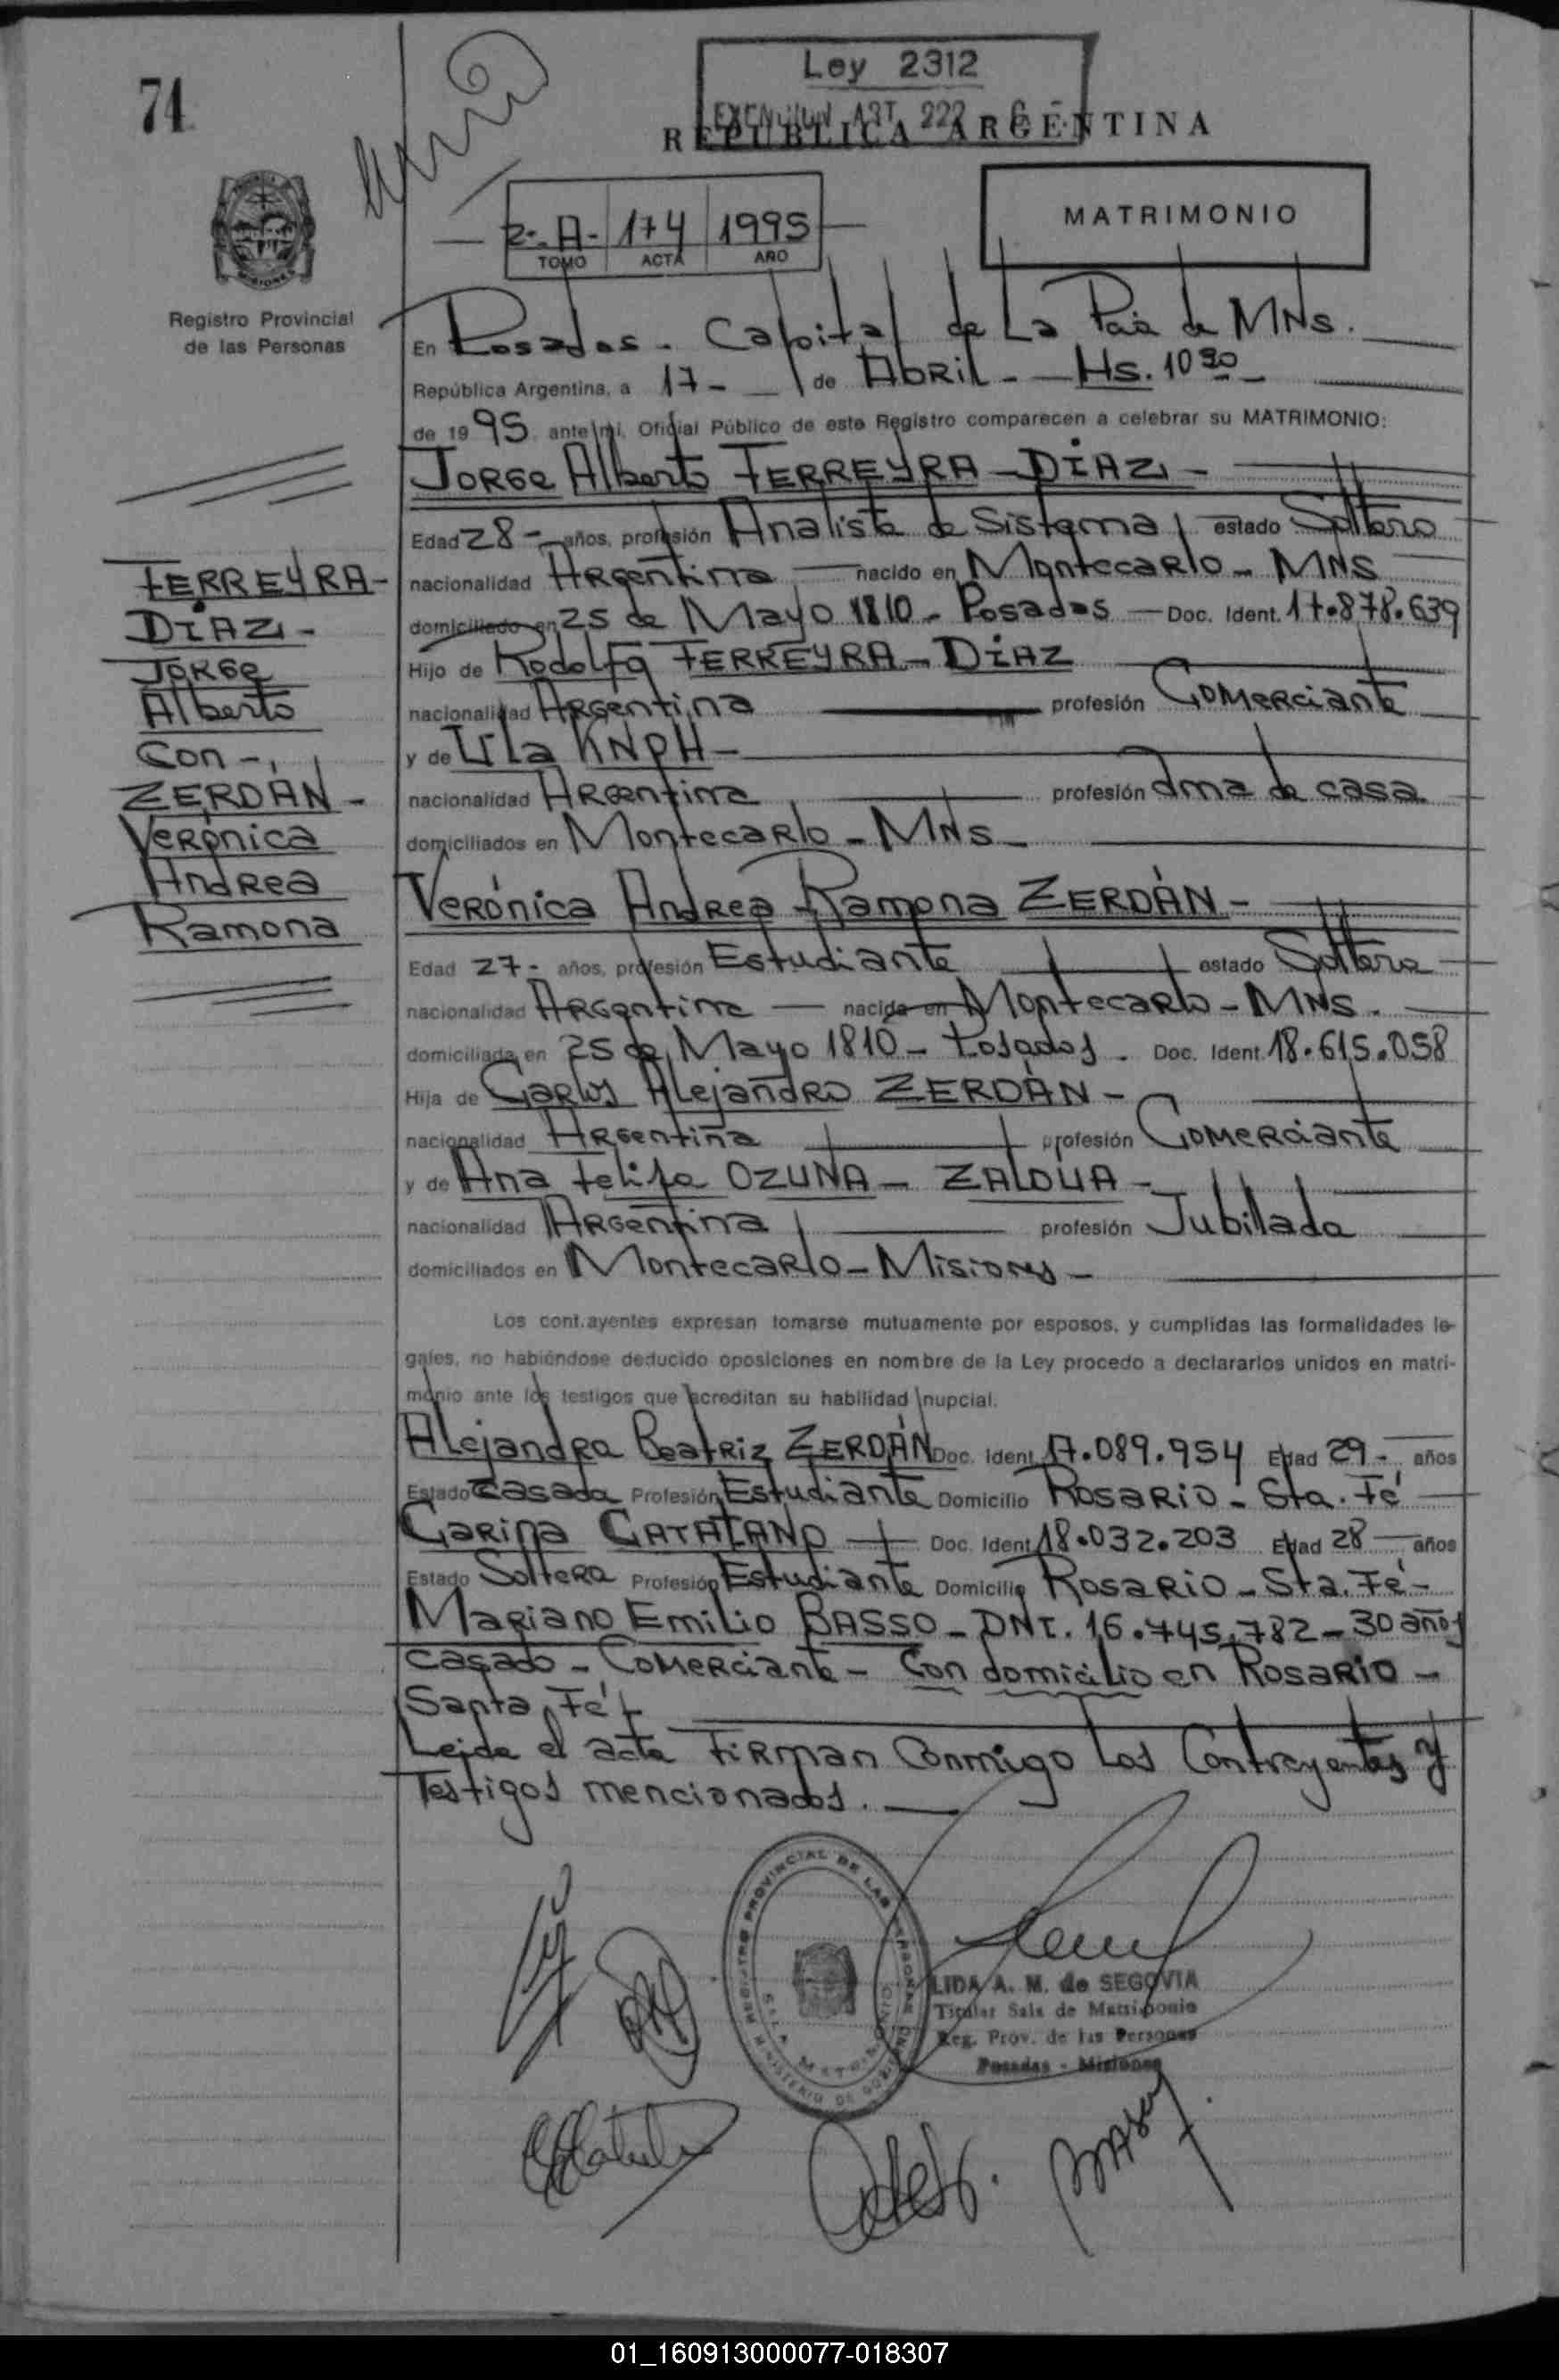 74
Ley 2312
EXENCION ART. 222
REPUBLICA ARGENTINA
2º-A- 174 1995
TOMO ACTA AÑO
MATRIMONIO
Registro Provincial
de las Personas
En Posadas - Capital de La Pcia de MNs.
República Argentina, a 17 - de Abril - Hs. 10 30 -
de 1995 ante mi, Oficial Público de este Registro comparecen a celebrar su MATRIMONIO:
Jorge Alberto FERREYRA-DÍAZ -
Edad 28 - años, profesión Analista de Sistema estado Soltero
nacionalidad Argentina nacido en Montecarlo - MNS
domiciliado en 25 de Mayo 1810 - Posadas - Doc. Ident. 17.878.639
Hijo de Rodolfo FERREYRA-DÍAZ
nacionalidad Argentina profesión Comerciante
y de KNPH -
nacionalidad Argentina profesión Ama de casa
domiciliados en Montecarlo - MNS -
Verónica Andrea Ramona ZERDÁN -
Edad 27 - años, profesión Estudiante estado Soltera
nacionalidad Argentina - nacida en Montecarlo - MNS.
domiciliada en 25 de Mayo 1810 - Posadas - Doc. Ident. 18.615.058
Hija de Carlos Alejandro ZERDÁN -
nacionalidad Argentina profesión Comerciante
y de Ana Felisa OZUNA - ZALDUA -
nacionalidad Argentina profesión Jubilada
domiciliados en Montecarlo - Misiones -
FERREYRA-
DÍAZ -
Jorge
Alberto
Con -
ZERDÁN -
Verónica
Andrea
Ramona
Los contrayentes expresan tomarse mutuamente por esposos, y cumplidas las formalidades le-
gales, no habiéndose deducido oposiciones en nombre de la Ley procedo a declararlos unidos en matri-
monio ante los testigos que acreditan su habilidad nupcial.
Alejandra Beatriz ZERDÁN Doc. Ident. 17.089.954 Edad 29 - años
Estado Casada Profesión Estudiante Domicilio Rosario - Sta. Fé
Carina CATALANO Doc. Ident. 18.032.203 Edad 28 años
Estado Soltera Profesión Estudiante Domicilio Rosario - Sta. Fé -
Mariano Emilio BASSO - DNI. 16.745.782 - 30 años
Casado - Comerciante - Con domicilio en Rosario -
Santa Fé
Leida el acta Firman Conmigo Los Contrayentes y
Testigos mencionados.
REGISTRO PROVINCIAL DE LAS PERSONAS
MINISTERIO DE GOBIERNO
LIDA A. M. de SEGOVIA
Titular Sala de Matrimonio
Reg. Prov. de las Personas
Posadas - Misiones
01_160913000077-018307